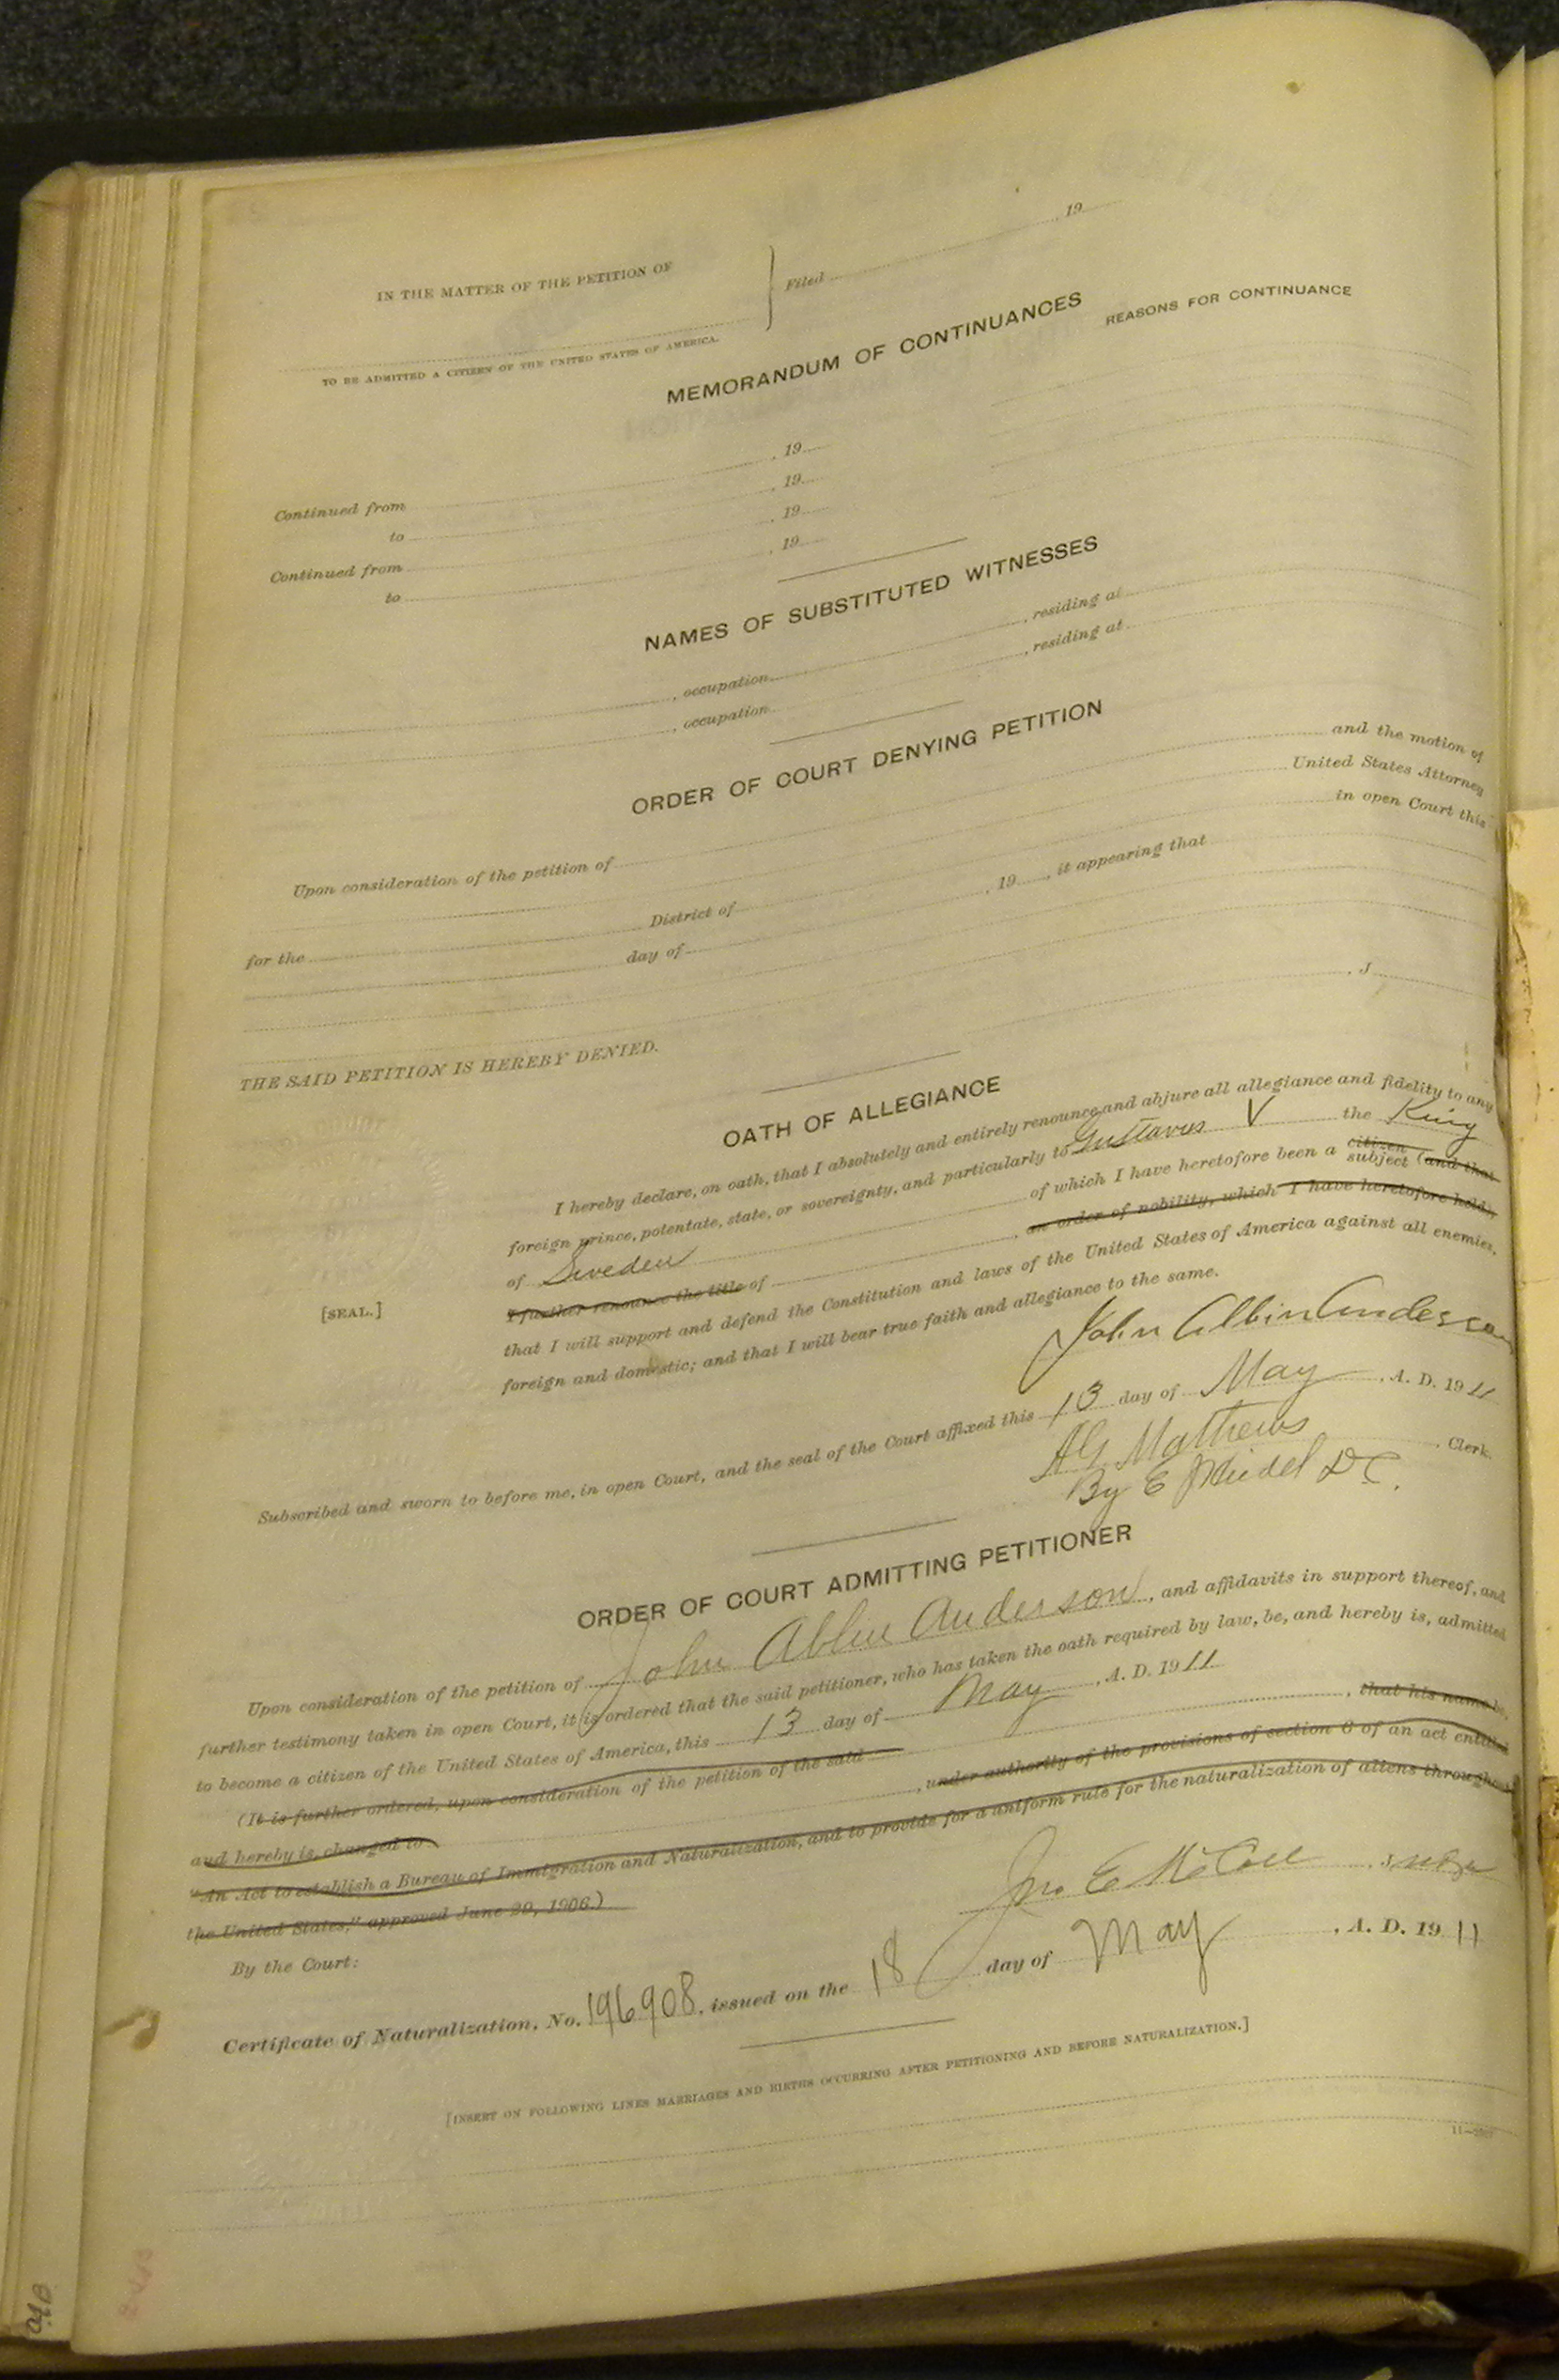 IN THE MATTER OF THE PETITION OF
TO BE ADMITTED A CITIZEN OF THE UNITED STATES OF AMERICA.
Filed , 19
MEMORANDUM OF CONTINUANCES
REASONS FOR CONTINUANCE
Continued from , 19
to , 19
Continued from , 19
to , 19
NAMES OF SUBSTITUTED WITNESSES
, occupation , residing at
, occupation , residing at
ORDER OF COURT DENYING PETITION
Upon consideration of the petition of and the motion of
United States Attorney
for the District of in open Court this
day of , 19 , it appearing that
THE SAID PETITION IS HEREBY DENIED.
, J
OATH OF ALLEGIANCE
I hereby declare, on oath, that I absolutely and entirely renounce and abjure all allegiance and fidelity to any
foreign prince, potentate, state, or sovereignty, and particularly to Gustavus V the King
of Sweden of which I have heretofore been a citizen subject (and that
I further renounce the title of , an order of nobility, which I have heretofore held)
that I will support and defend the Constitution and laws of the United States of America against all enemies,
foreign and domestic; and that I will bear true faith and allegiance to the same.
[SEAL.]
John Albin Anderson
Subscribed and sworn to before me, in open Court, and the seal of the Court affixed this 13 day of May , A. D. 1911
Mathews , Clerk.
By E D C.
ORDER OF COURT ADMITTING PETITIONER
Upon consideration of the petition of John Ablin Anderson , and affidavits in support thereof, and
further testimony taken in open Court, it is ordered that the said petitioner, who has taken the oath required by law, be, and hereby is, admitted
to become a citizen of the United States of America, this 13 day of May , A. D. 1911
(It is further ordered, upon consideration of the petition of the said , that his name be,
and hereby is, changed to , under authority of the provisions of section 6 of an act entitled
"An Act to establish a Bureau of Immigration and Naturalization, and to provide for a uniform rule for the naturalization of aliens throughout
the United States," approved June 29, 1906.)
By the Court:
Jno E McCall , Judge
Certificate of Naturalization, No. 196908, issued on the 18 day of May , A. D. 1911
[INSERT ON FOLLOWING LINES MARRIAGES AND BIRTHS OCCURRING AFTER PETITIONING AND BEFORE NATURALIZATION.]